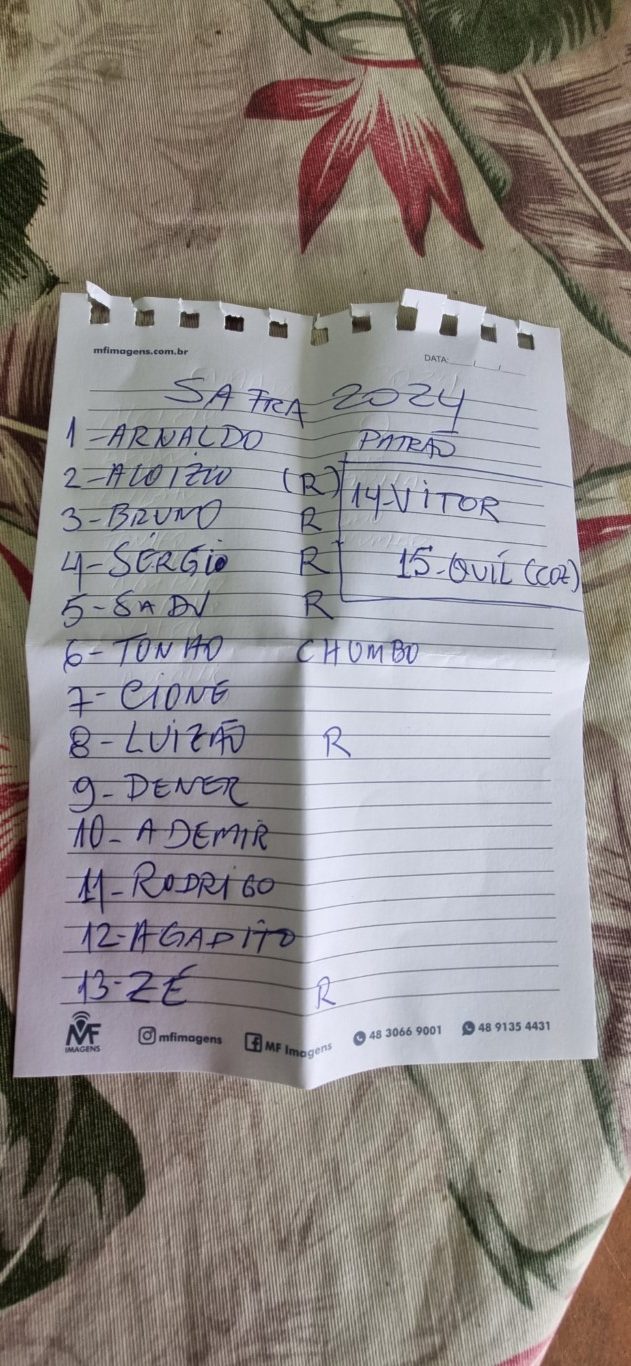 mfimagens.com.br DATA: __/__/__
SAFRA 2024
1-ARNALDO PATRÃO
2-ALOIZIO (R)
14-VITOR
3-BRUNO R
4-SÉRGIO R
15-QUIL (COZ)
5-SADV R
6-TONHO CHUMBO
7-CIONE
8-LUIZÃO R
9-DENER
10-ADEMIR
11-RODRIGO
12-AGAPITO
13-ZÉ R
MF IMAGENS mfimagens MF Imagens 48 3066 9001 48 9135 4431